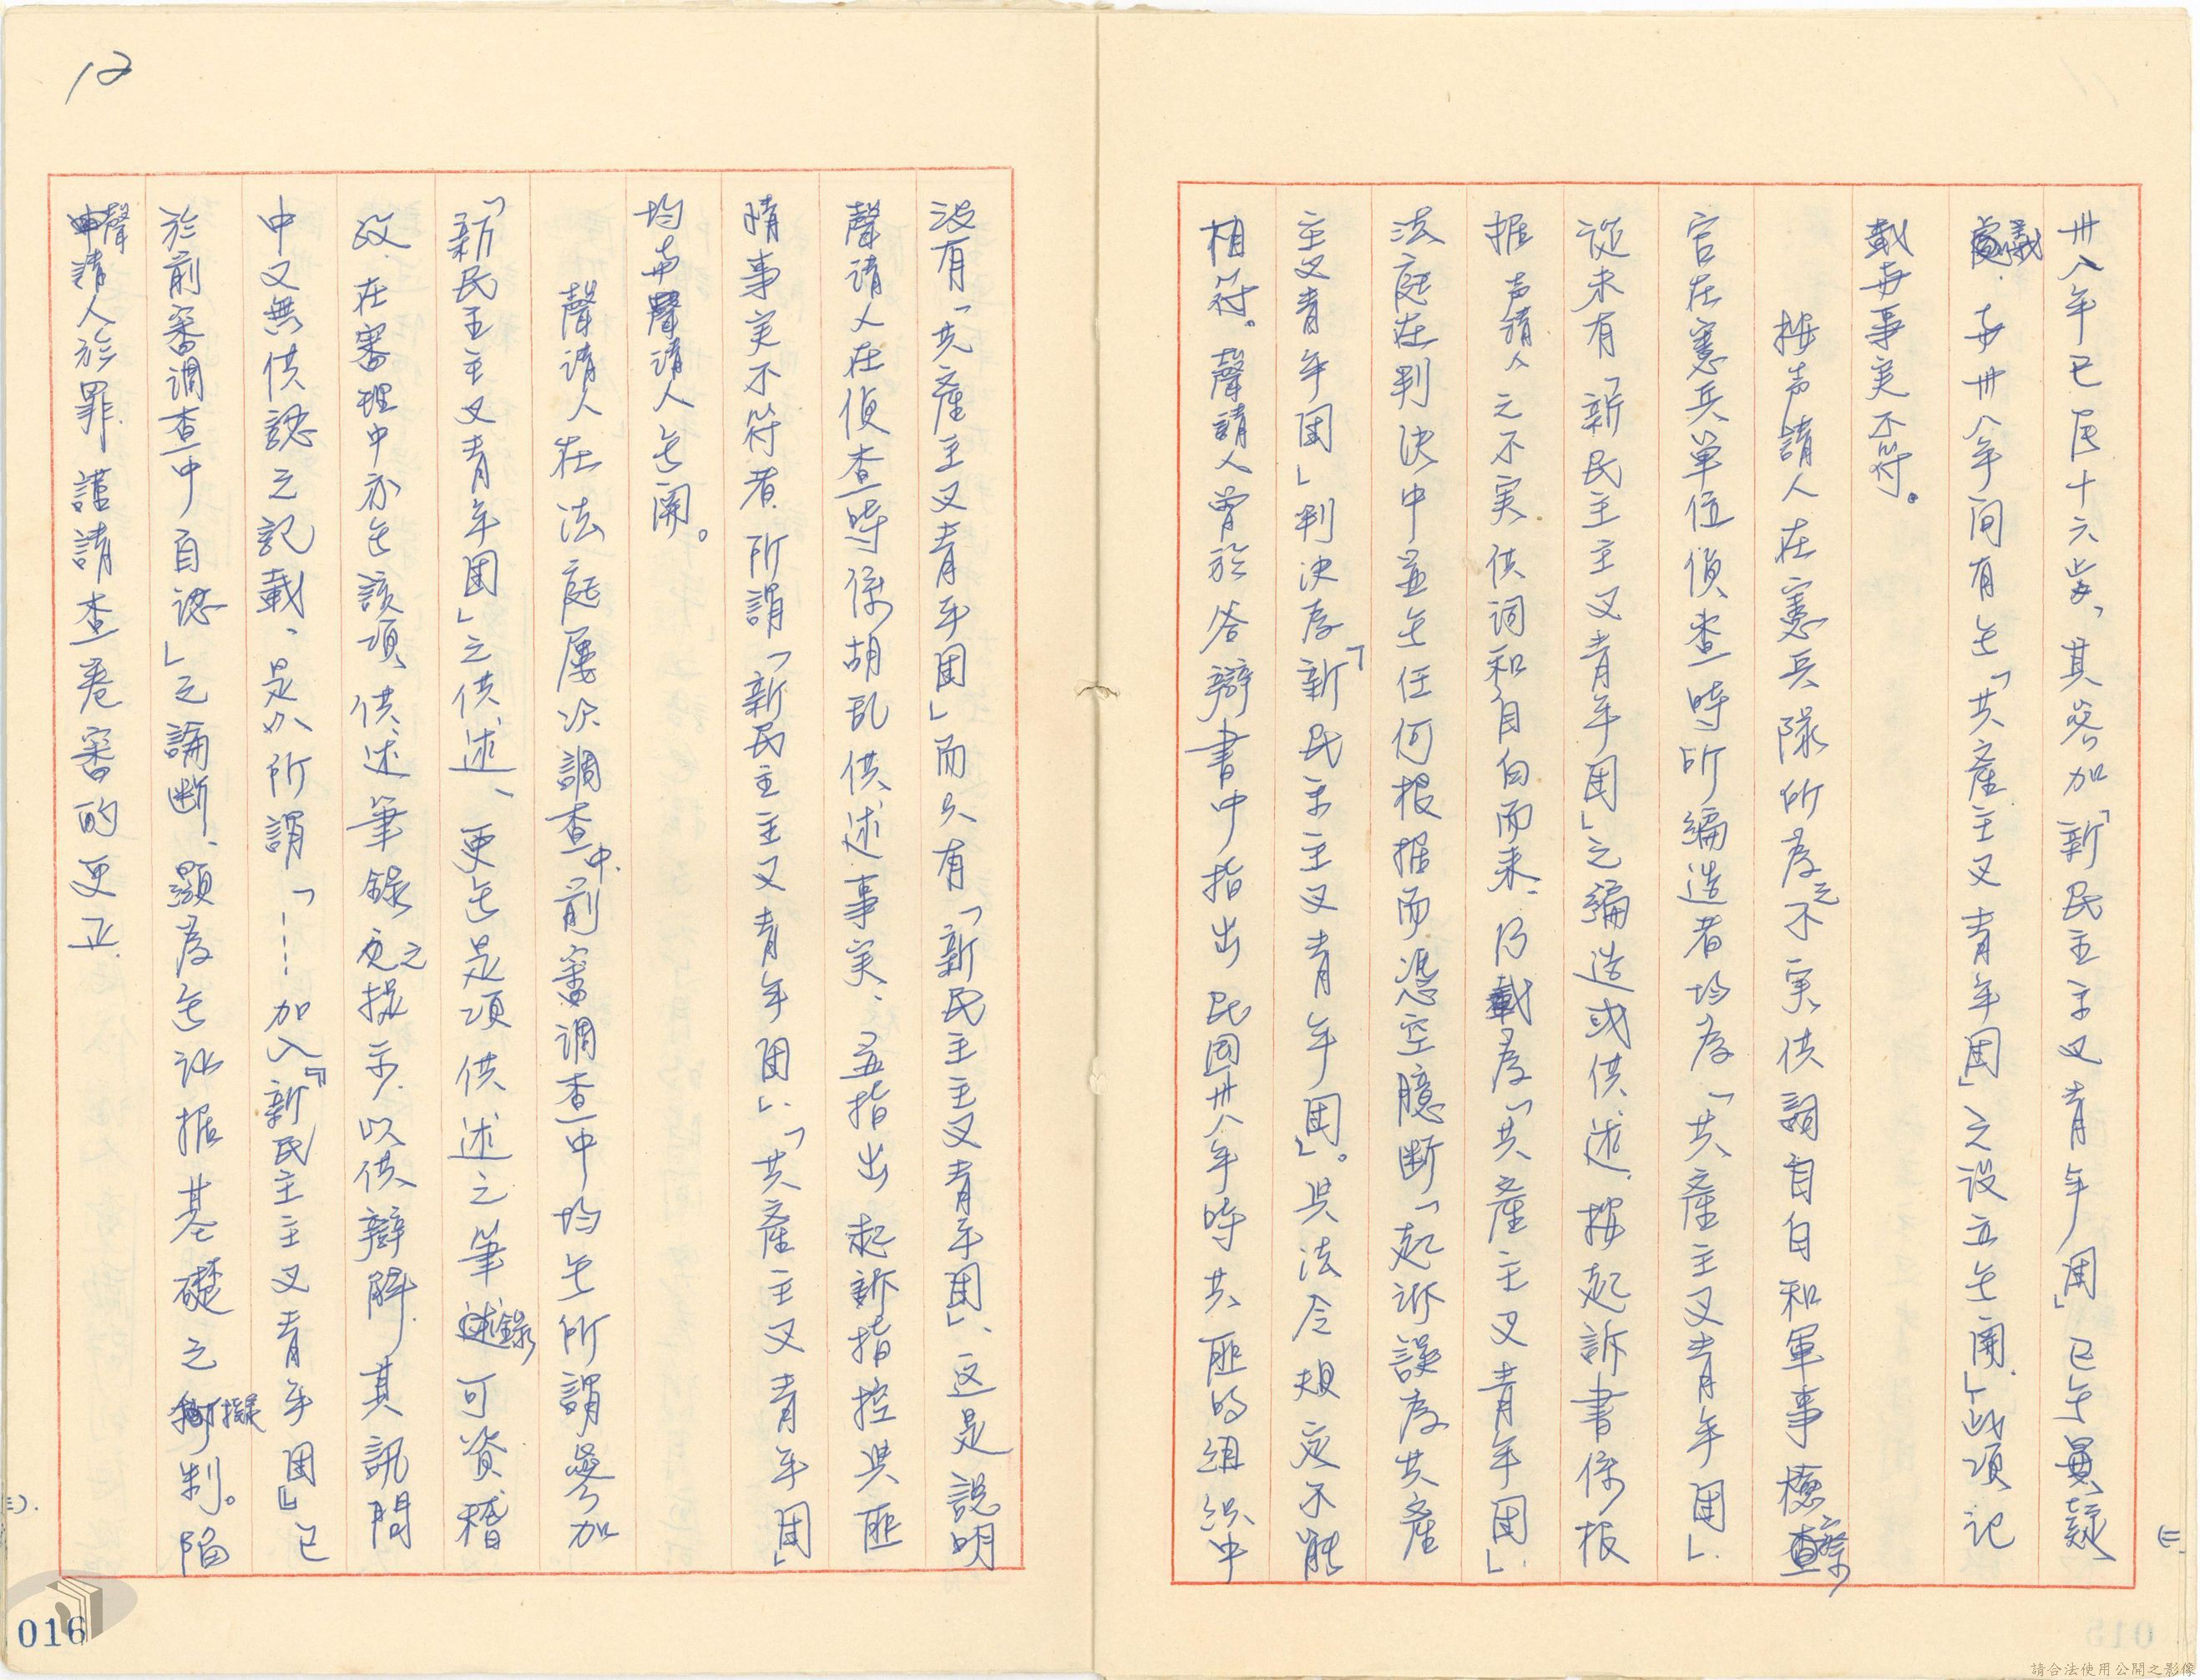 卅八年已居十六歲，其參加「新民主主义青年团」已無異疑
議．与卅八年间有無「共產主义青年团」之设立無関．」此項记
載与事実不符。
按声請人在憲兵隊所為之不実供詞自白和軍事檢察
官在憲兵単位偵查時所編造者均為「共產主义青年团」．
從未有「新民主主义青年团」之編造或供述．按起訴書係根
据声請人之不実供词和自白而来．乃載為「共產主义青年团」．
法庭在判決中並無任何根据而憑空臆断「起訴誤為共產
主义青年团」判決為「新民主主义青年团」。与法令規定不能
相符。聲請人曾於答辯書中指出民国卅八年時共匪的组织中
没有「共產主义青年团」而只有「新民主主义青年团」、这是說明
聲請人在偵查時係胡乱供述事実、並指出起訴指控与匪
情事実不符者．所謂「新民主主义青年团」．「共產主义青年团」
均与聲請人無関。
聲請人在法庭屢次調查中．前審调查中均無所謂參加
「新民主主义青年团」之供述、更無是項供述之筆錄可資稽
考．在審理中亦無該項供述筆錄之提示．以供辯解．其訊問
中又無供認之記載．是以所謂「……加入『新民主主义青年团』已
於前審调查中自認」之論断．顯為無证据基礎之擬制。陷
聲請人於罪．謹請查卷審酌更正．
12
(三)
(三)．
016
015
請合法使用公開之影像